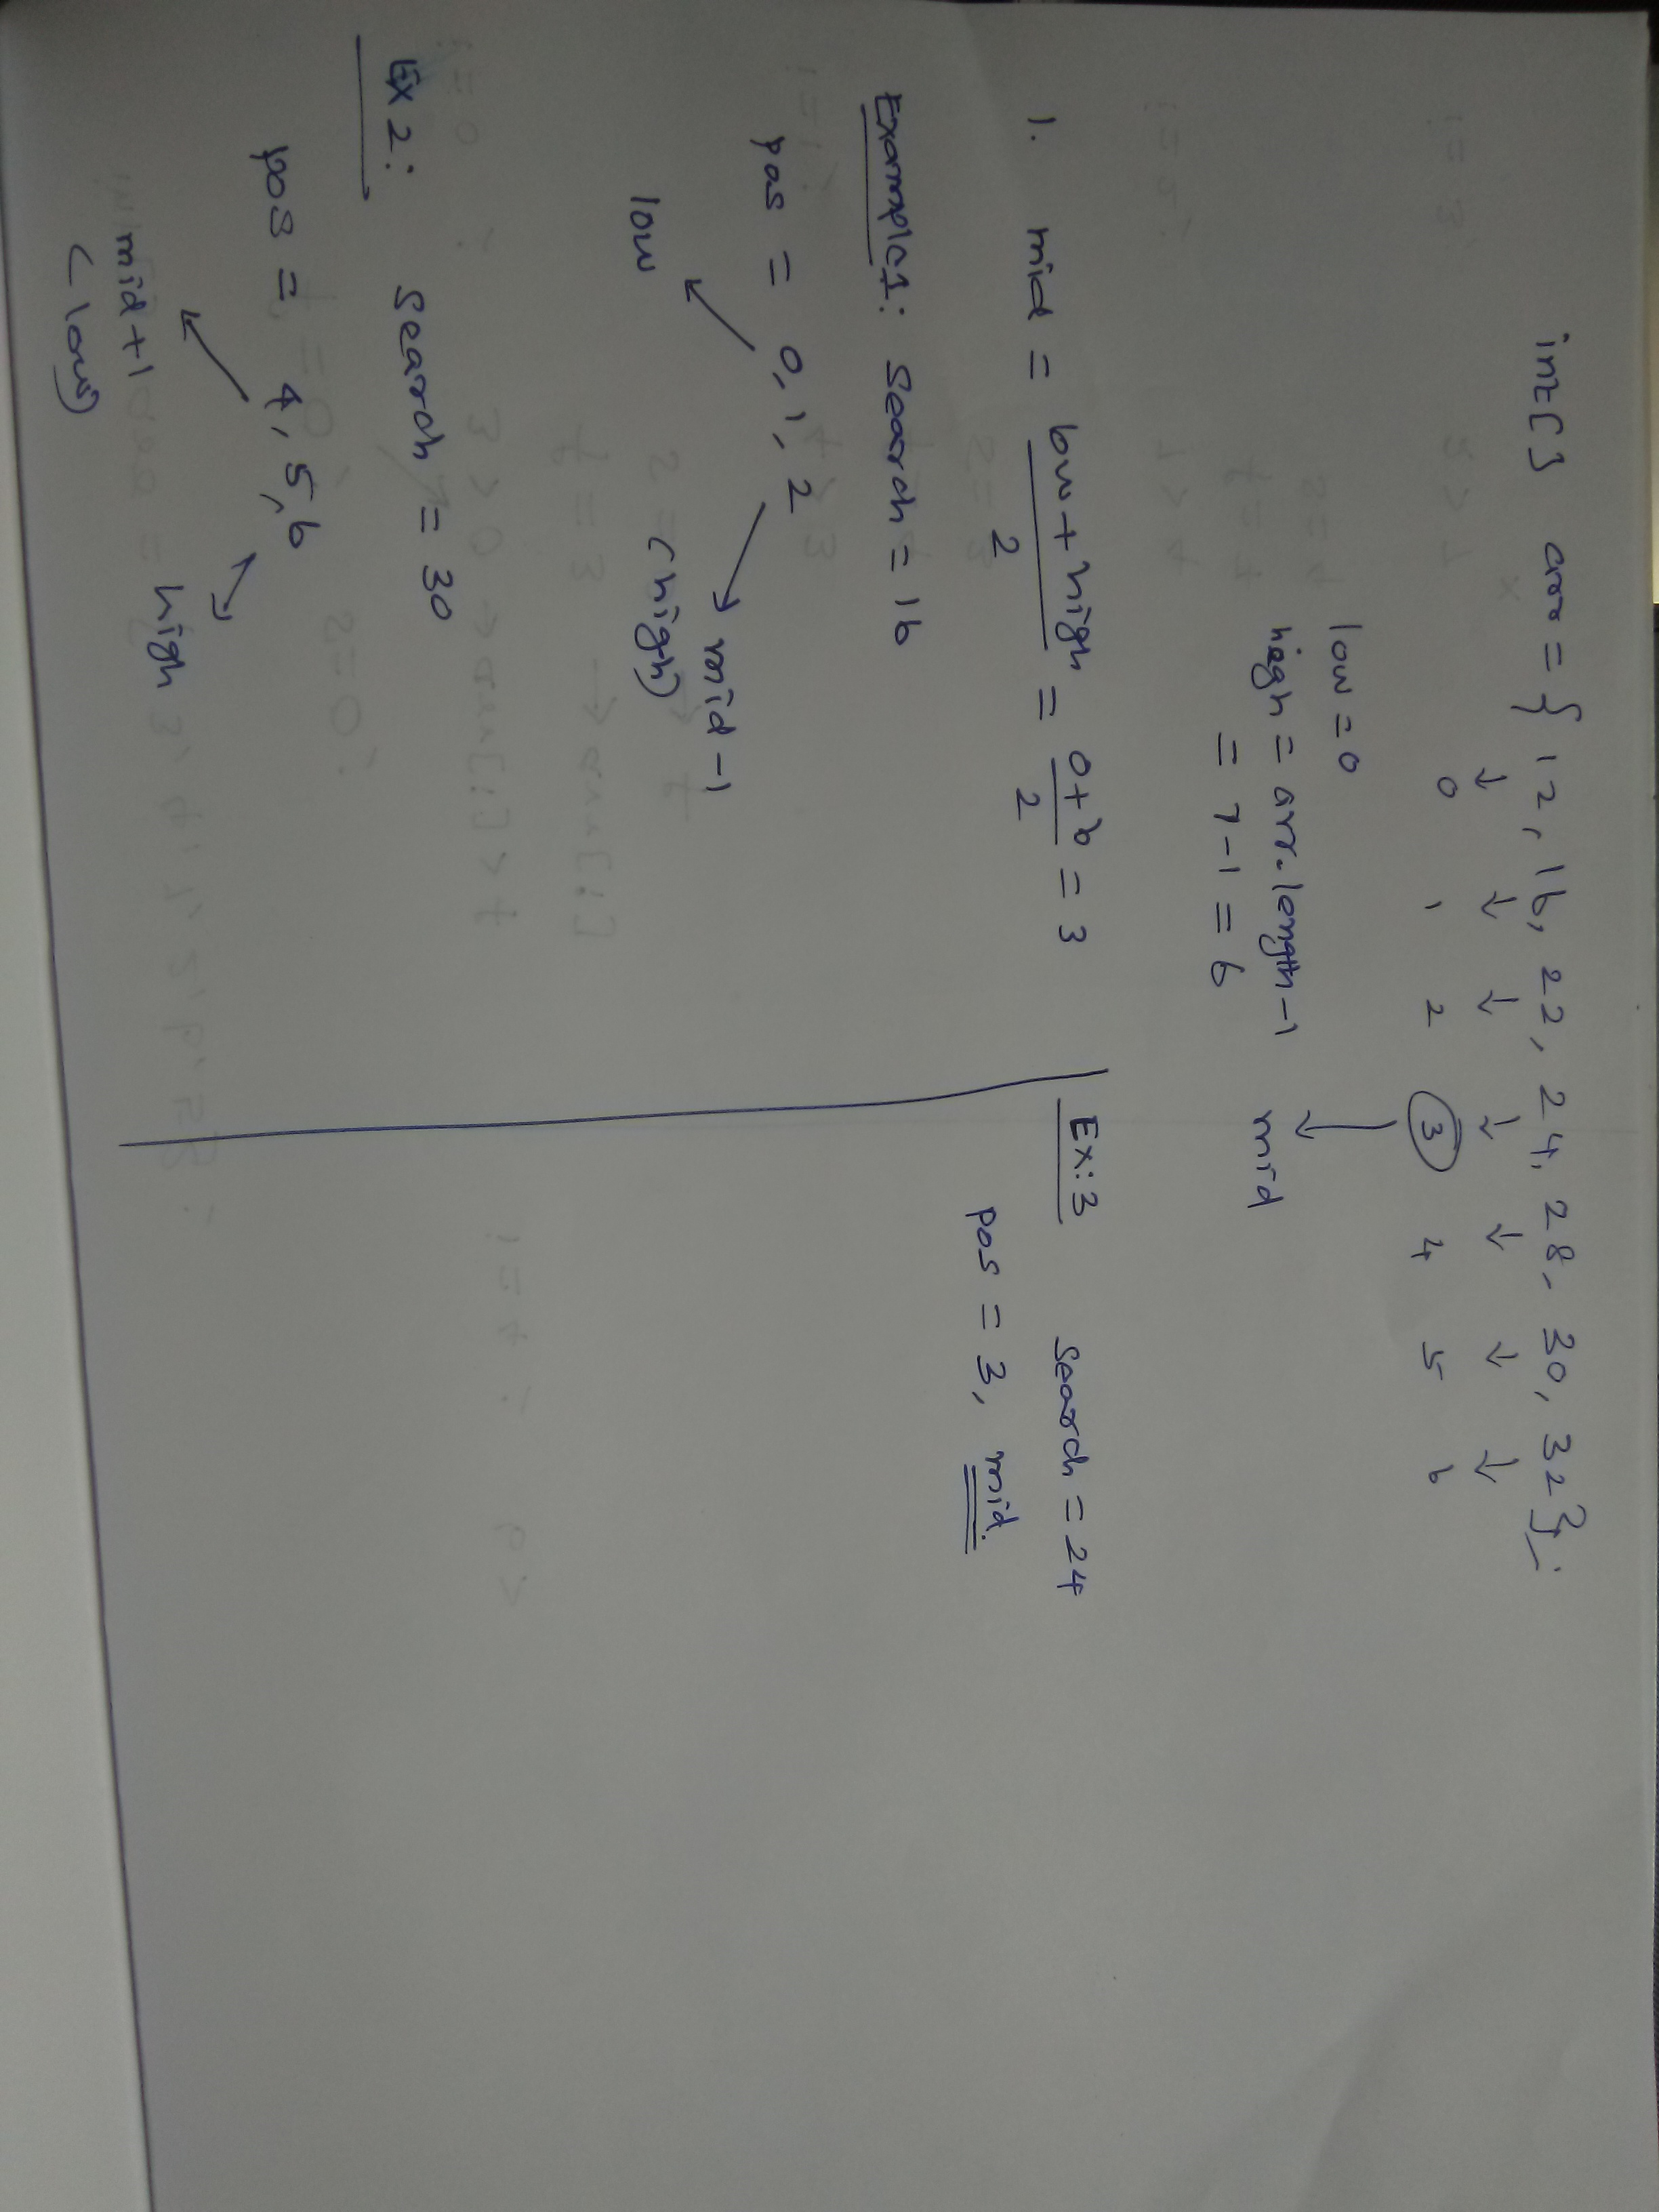 int[] arr = { 12, 16, 22, 24, 28, 30, 32};
↓ ↓ ↓ ↓ ↓ ↓ ↓
0 1 2 3 4 5 6
low = 0
high = arr.length-1
mid
= 7-1 = 6
1. mid = low + high / 2 = 0+6 / 2 = 3
Example1: Search = 16
pos = 0, 1, 2
mid -1
low (high)
Ex 2: Search = 30
pos = 4, 5, 6
high
mid+1
(low)
Ex: 3 Search = 24
pos = 3, mid.